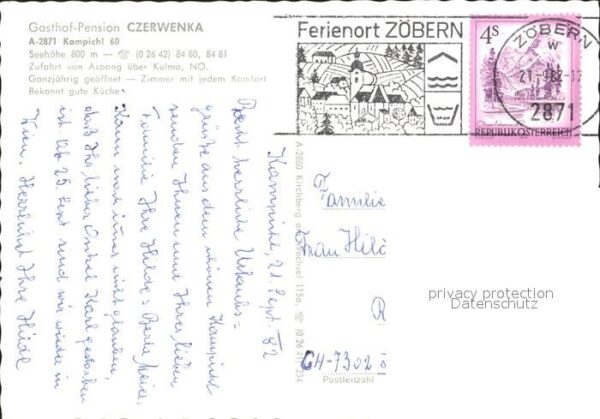 Gasthof-Pension CZERWENKA
A-2871 Kampichl 60
Seehöhe 800 m — ☏ (0 26 42) 84 80, 84 81
Zufahrt von Aspang über Kulma, NÖ.
Ganzjährig geöffnet — Zimmer mit jedem Komfort
Bekannt gute Küche
Ferienort ZÖBERN
ZÖBERN
2871
4S
REPUBLIK ÖSTERREICH
Kampichl, 21. Sept. 82
Recht herzliche Urlaubs=
grüße aus dem schönen Kampichl
senden Ihnen und Ihrer lieben
Familie Ihre Hilde
Kann noch immer nicht glauben,
daß Ihr lieber Onkel Karl gestorben
ist. Ab 25. Sept. sind wir wieder in
Wien, Herzlichst Ihre Hilde
A-2880 Kirchberg am Wechsel 116a, ☏
Familie
Frau
R
CH-7302
Postleitzahl
privacy protection
Datenschutz